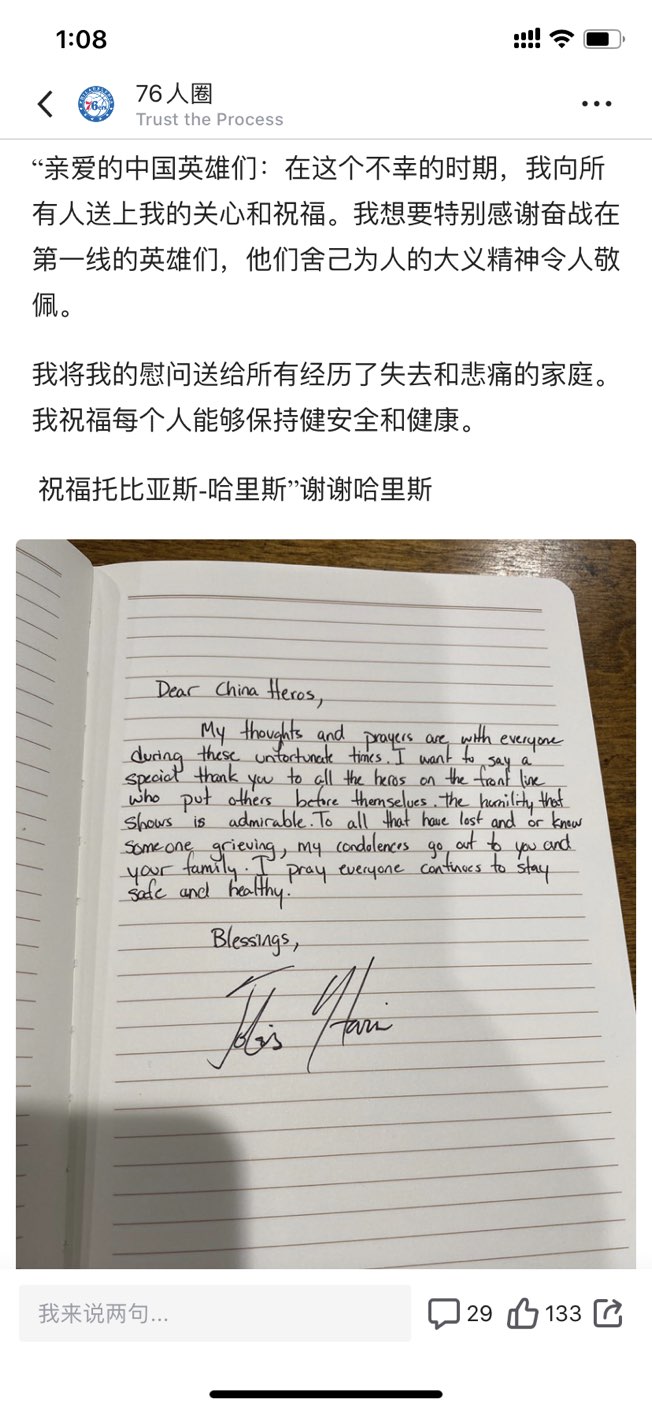 1:08
76人圈
Trust the Process
“亲爱的中国英雄们：在这个不幸的时期，我向所
有人送上我的关心和祝福。我想要特别感谢奋战在
第一线的英雄们，他们舍己为人的大义精神令人敬
佩。
我将我的慰问送给所有经历了失去和悲痛的家庭。
我祝福每个人能够保持健安全和健康。
祝福托比亚斯-哈里斯”谢谢哈里斯
Dear China Heros,
My thoughts and prayers are with everyone
during these unfortunate times. I want to say a
special thank you to all the heros on the front line
who put others before themselves. The humility that
shows is admirable. To all that have lost and or know
someone grieving, my condolences go out to you and
your family. I pray everyone continues to stay
safe and healthy.
Blessings,
Tobias Harris
我来说两句...
29
133